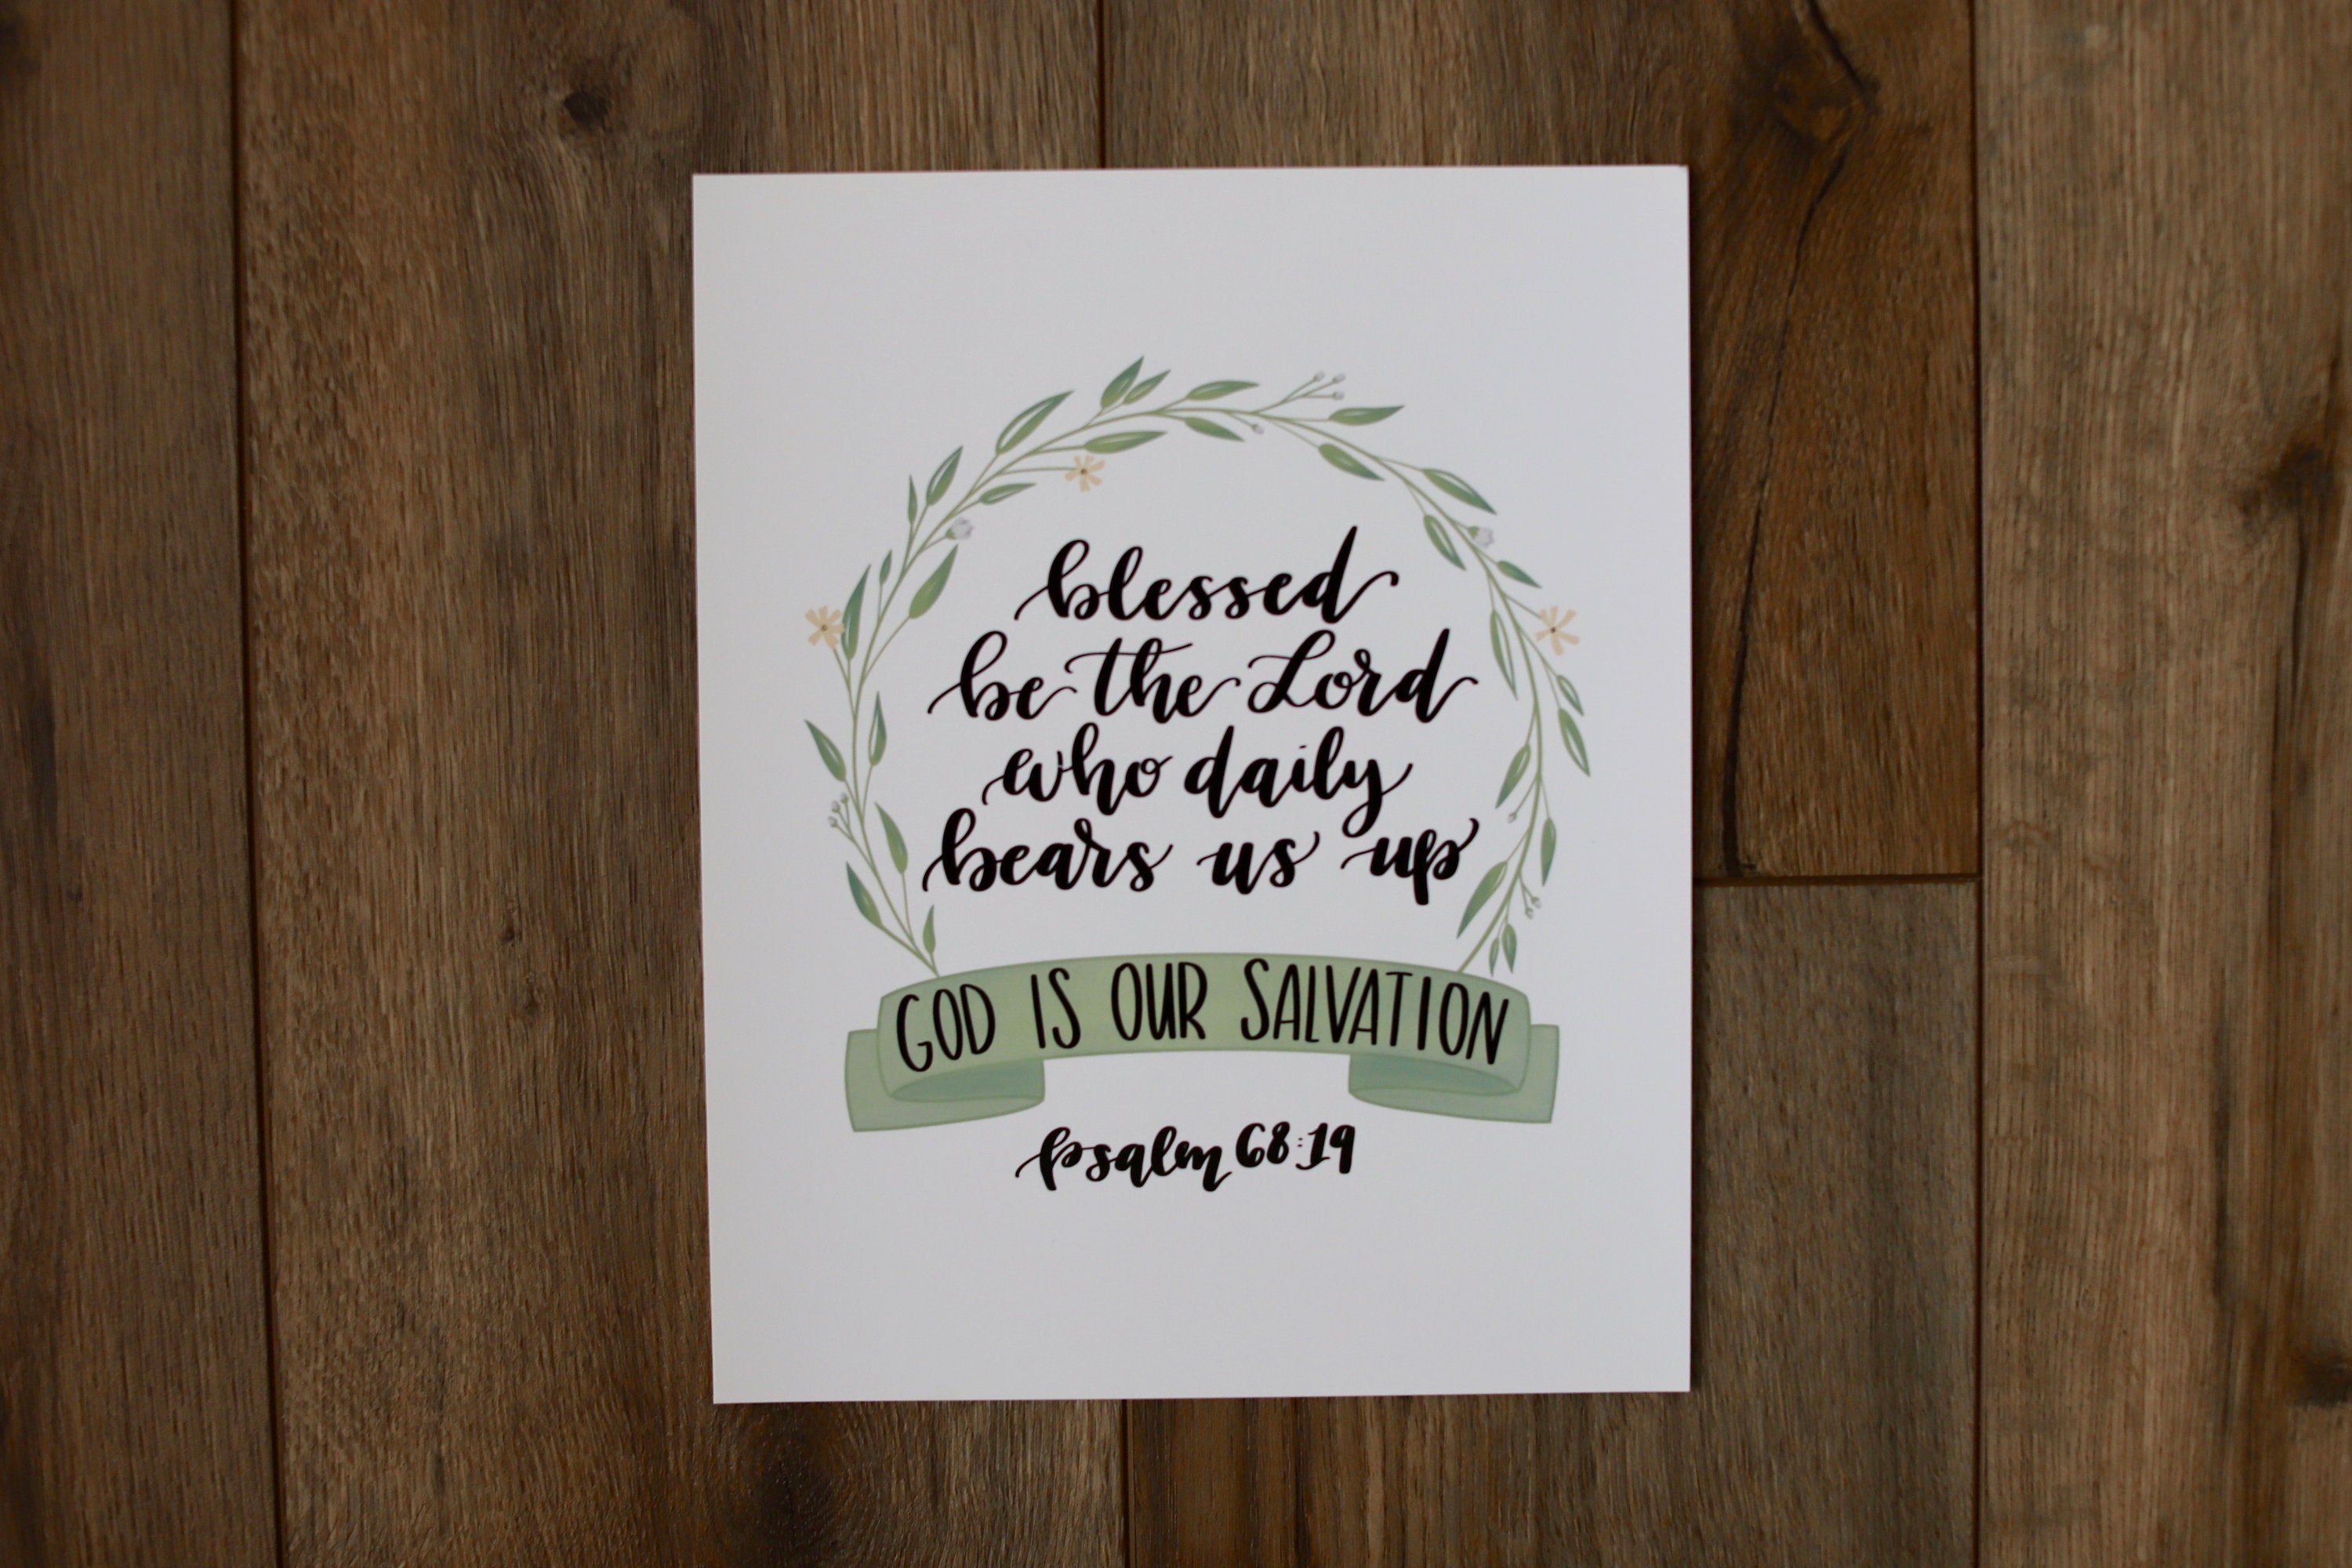 blessed
be the Lord
who daily
bears us up
GOD IS OUR SALVATION
Psalm 68:19